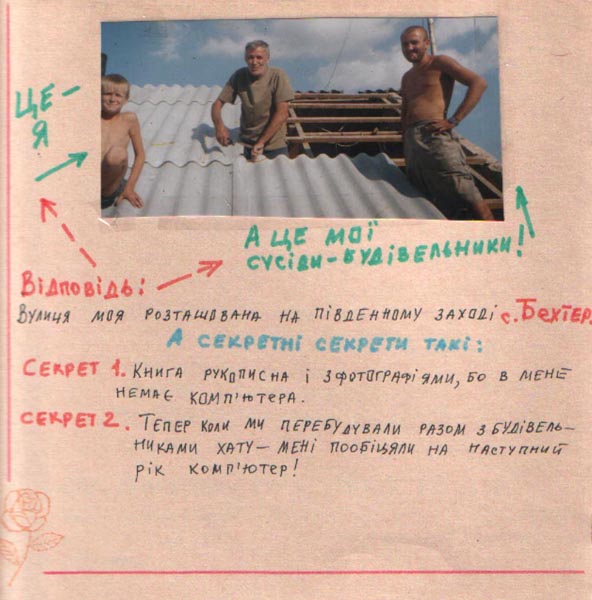 ЦЕ-
Я
А ЦЕ МОЇ
СУСІДИ-БУДІВЕЛЬНИКИ!
ВІДПОВІДЬ:
ВУЛИЦЯ МОЯ РОЗТАШОВАНА НА ПІВДЕННОМУ ЗАХОДІ с. БЕХТЕР.
А СЕКРЕТНІ СЕКРЕТИ ТАКІ:
СЕКРЕТ 1. КНИГА РУКОПИСНА І З ФОТОГРАФІЯМИ, БО В МЕНЕ
НЕМАЄ КОМП'ЮТЕРА.
СЕКРЕТ 2. ТЕПЕР КОЛИ МИ ПЕРЕБУДУВАЛИ РАЗОМ З БУДІВЕЛЬ-
НИКАМИ ХАТУ — МЕНІ ПООБІЦЯЛИ НА НАСТУПНИЙ
РІК КОМП'ЮТЕР!